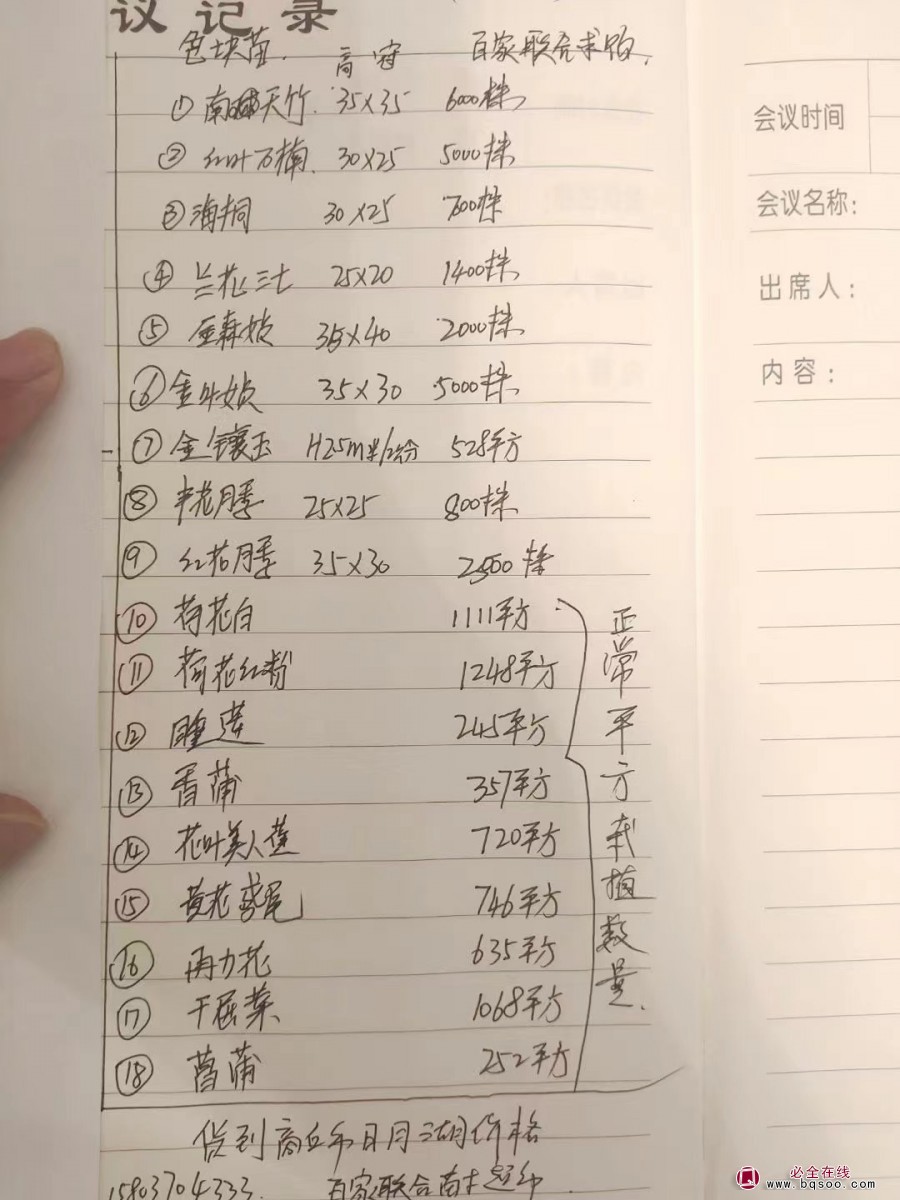 议记录
色块苗. 高 冠 百家联合求购.
① 南天竹. 35×35 6000株
② 红叶石楠. 30×25 5000株
③ 海桐 30×25 700株
④ 兰花三七 25×20 1400株
⑤ 金森女贞 35×40 2000株
⑥ 金叶女贞 35×30 5000株
⑦ 金镶玉 H2.5m 528平方
⑧ 丰花月季 25×25 800株
⑨ 红花月季 35×30 2500株
⑩ 荷花白 1111平方
⑪ 荷花红粉 1248平方
⑫ 睡莲 245平方
⑬ 香蒲 357平方
⑭ 花叶美人蕉 720平方
⑮ 黄花鸢尾 746平方
⑯ 再力花 635平方
⑰ 千屈菜 1068平方
⑱ 菖蒲 252平方
正常平方栽植数量.
货到商丘市日月湖价格
15803704333. 百家联合苗木超市.
会议时间
会议名称：
出席人：
内容：
必全在线
www.bqsoo.com